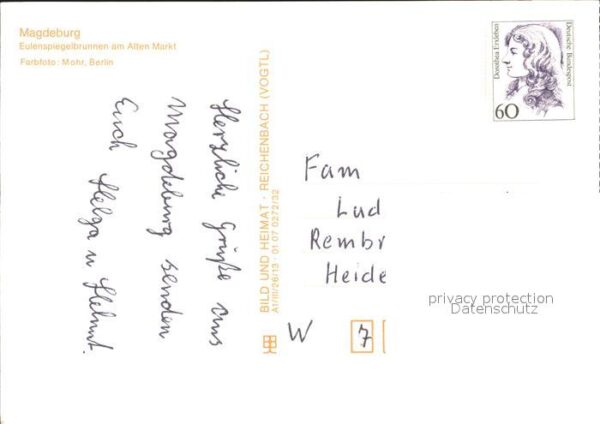 Magdeburg
Eulenspiegelbrunnen am Alten Markt
Farbfoto: Mohr, Berlin
Herzliche Grüße aus
Magdeburg senden
Euch Helga u Helmut.
BILD UND HEIMAT · REICHENBACH (VOGTL)
A1/III/26/13 · 01 07 0272/32
Dorothea Erxleben
Deutsche Bundespost
60
Fam
Lud
Rembr
Heide
W 7
privacy protection
Datenschutz